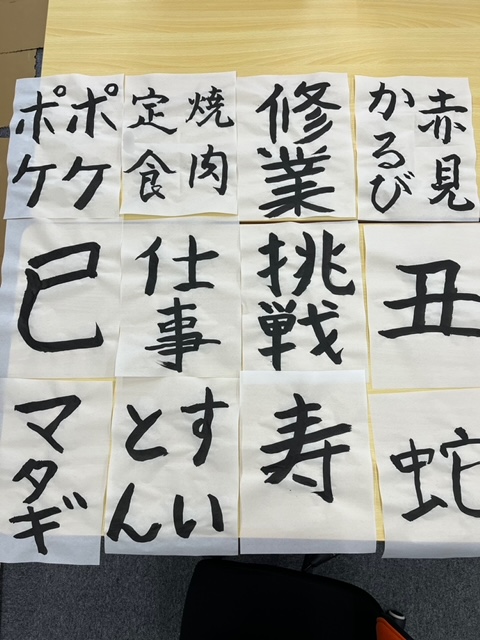 ポケ
ポケ
焼肉
定食
修業
赤見
かるび
巳
仕事
挑戦
丑
マタギ
すい
とん
寿
蛇